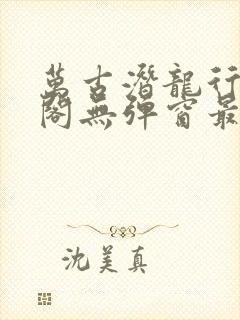 萬古潛龍行
閣無彈窗最
沈美真